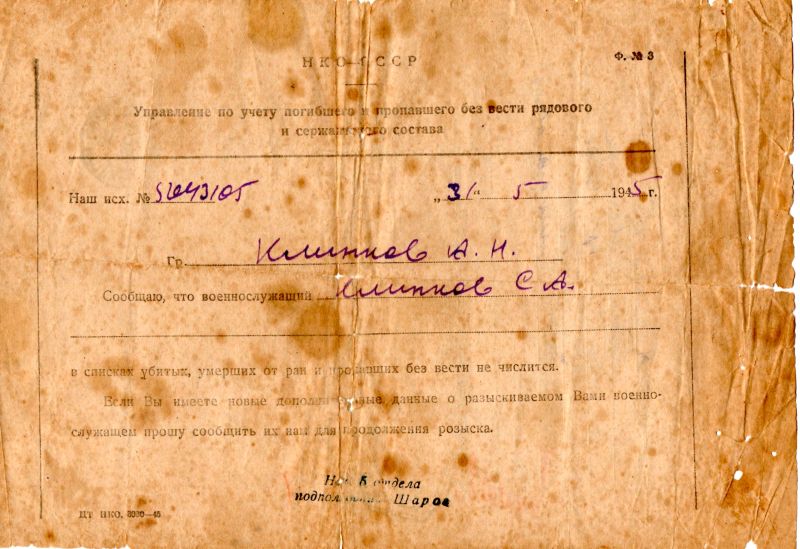 НКО СССР
Ф. № 3
Управление по учету погибшего и пропавшего без вести рядового
и сержантского состава
Наш исх. № „31“ 5 1945 г.
Гр. Климков А. Н.
Сообщаю, что военнослужащий Климков С А.
в списках убитых, умерших от ран и пропавших без вести не числится.
Если Вы имеете новые дополнительные данные о разыскиваемом Вами военно-
служащем прошу сообщить их нам для продолжения розыска.
Нач 5 отдела
подполковник Шаров
ЦТ НКО. 3030—45